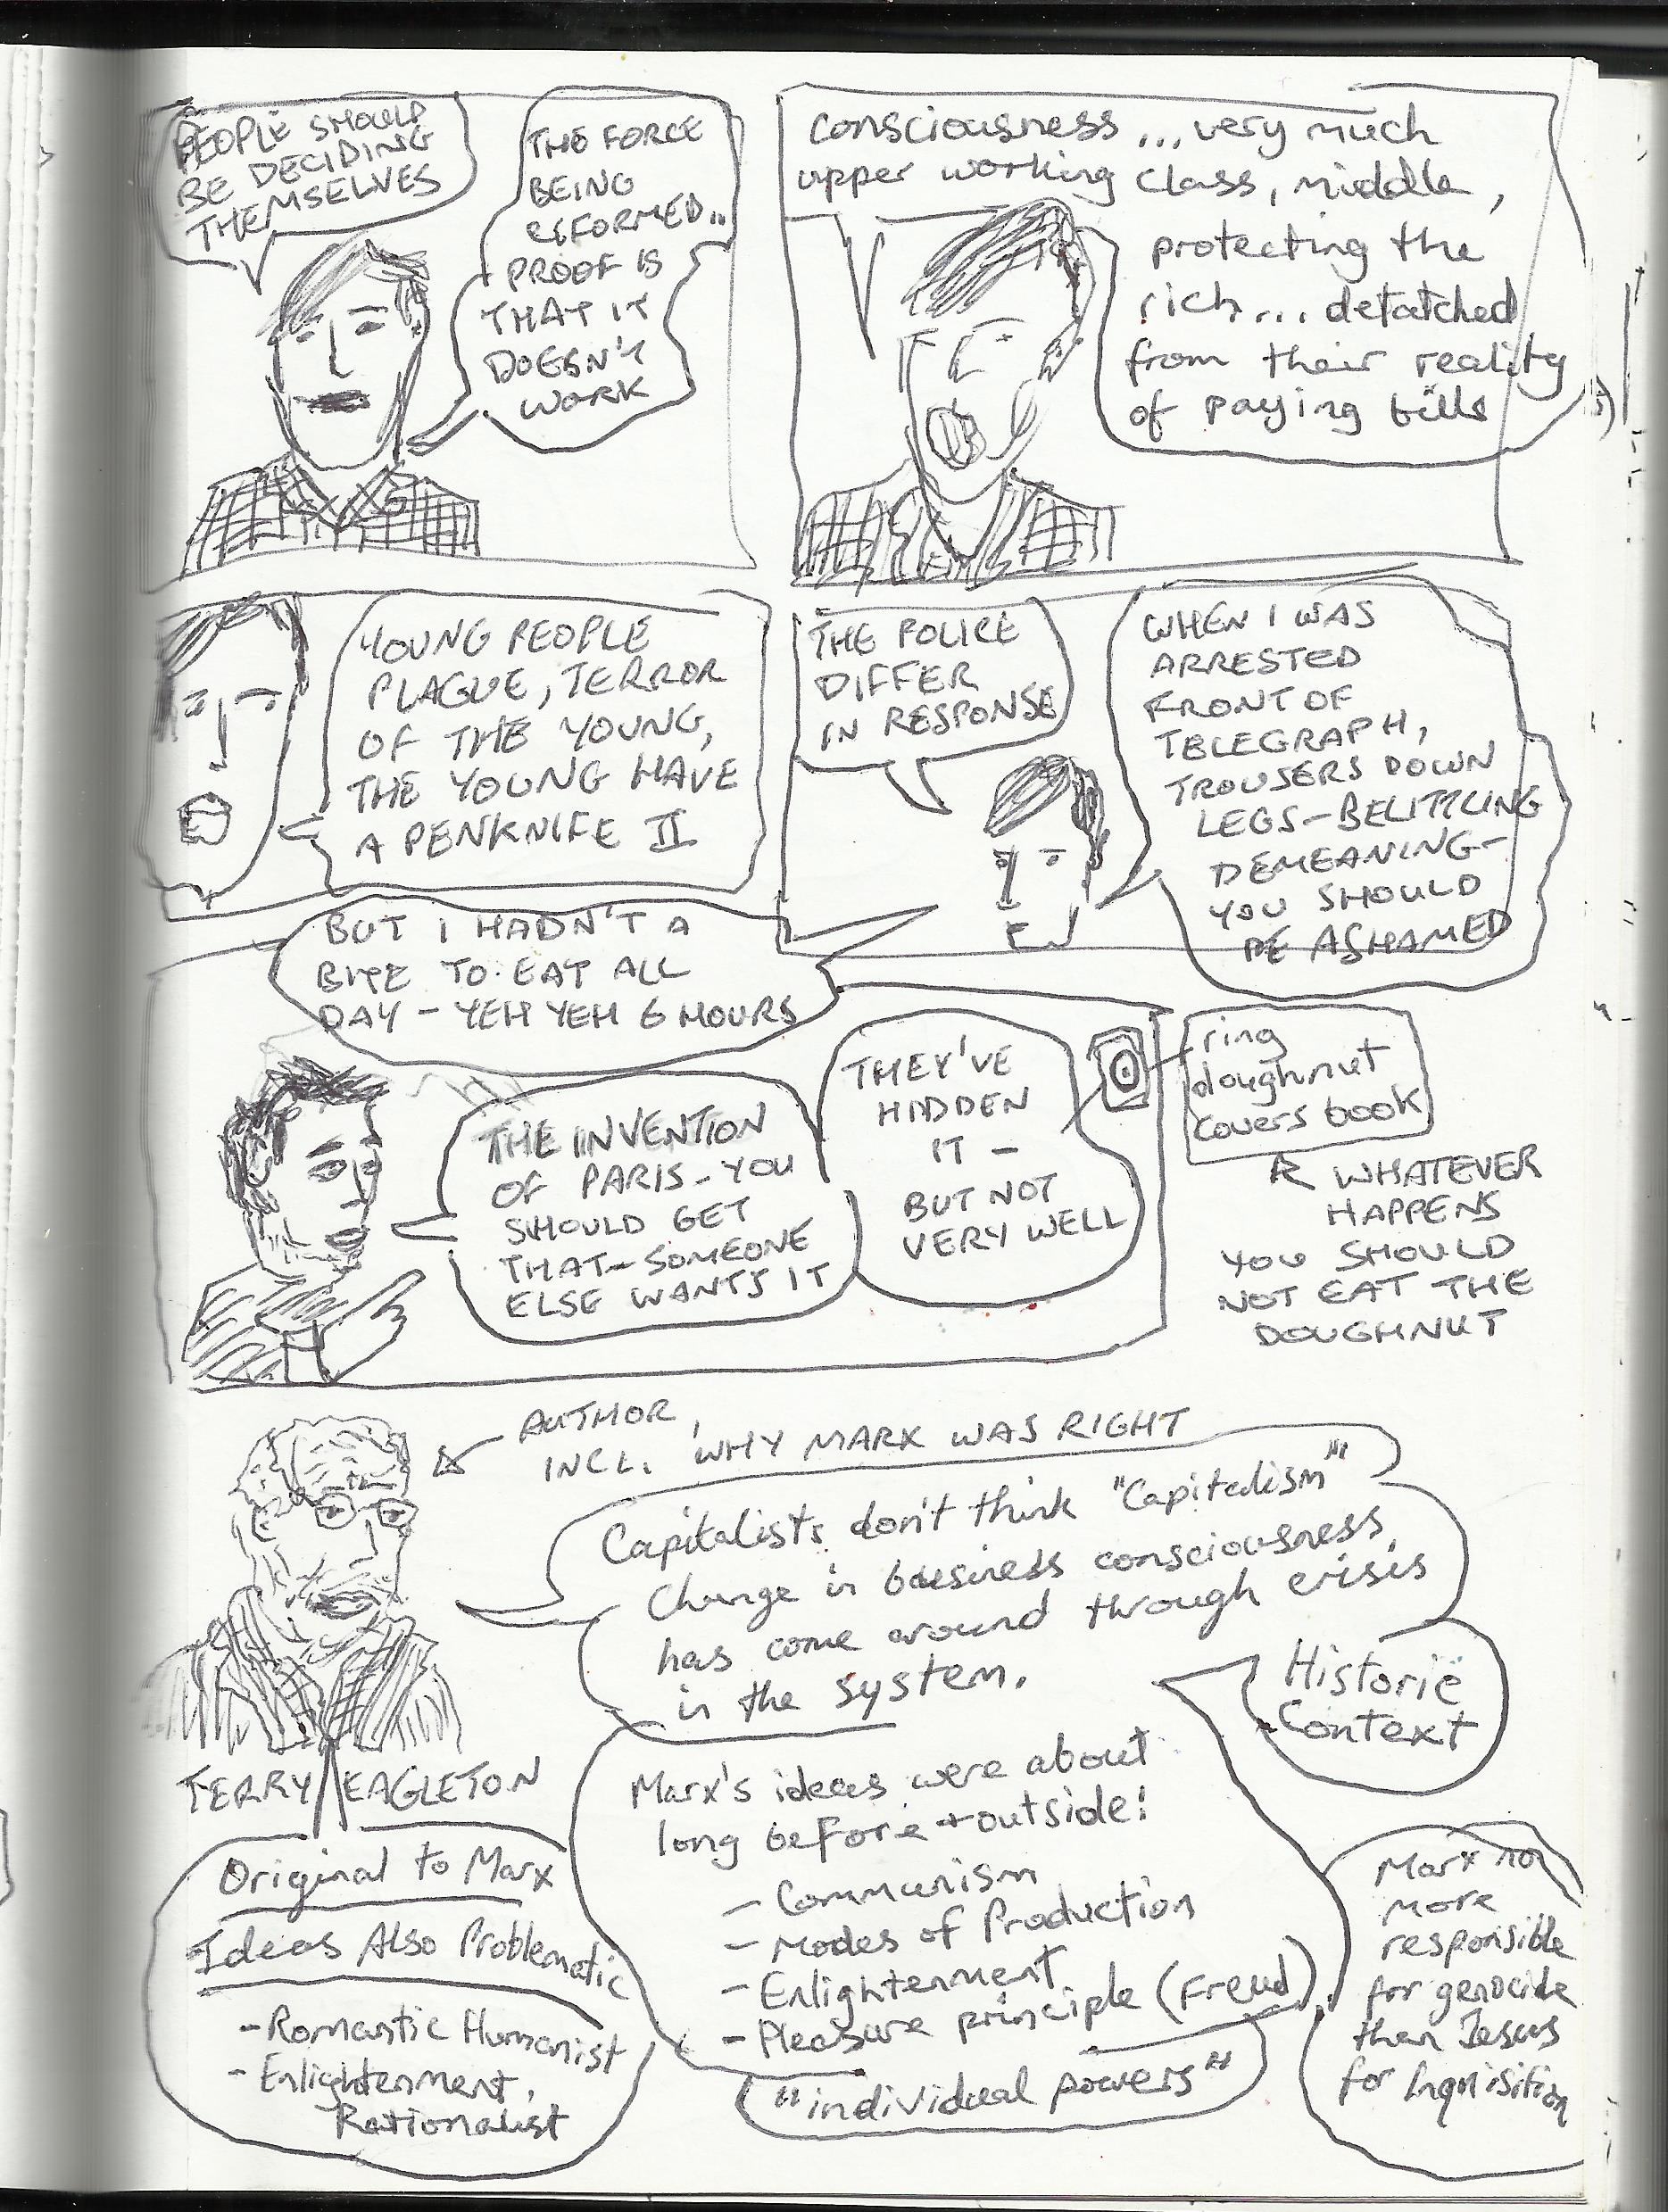 PEOPLE SHOULD
BE DECIDING
THEMSELVES
THE FORCE
BEING
REFORMED..
PROOF IS
THAT IT
DOESN'T
WORK
consciousness ... very much
upper working class, middle,
protecting the
rich... detatched
from their reality
of paying bills
YOUNG PEOPLE
PLAGUE, TERROR
OF THE YOUNG,
THE YOUNG HAVE
A PENKNIFE II
THE POLICE
DIFFER
IN RESPONSE
WHEN I WAS
ARRESTED
FRONT OF
TELEGRAPH,
TROUSERS DOWN
LEGS-BELITTLING
DEMEANING-
YOU SHOULD
BE ASHAMED
BUT I HADN'T A
BITE TO EAT ALL
DAY - YEH YEH 6 HOURS
THE INVENTION
OF PARIS - YOU
SHOULD GET
THAT - SOMEONE
ELSE WANTS IT
THEY'VE
HIDDEN
IT -
BUT NOT
VERY WELL
ring
doughnut
covers book
WHATEVER
HAPPENS
YOU SHOULD
NOT EAT THE
DOUGHNUT
AUTHOR,
INCL. 'WHY MARX WAS RIGHT
Capitalists don't think "Capitalism"
Change in business consciousness
has come around through crisis
in the system.
Historic
Context
TERRY EAGLETON
Marx's ideas were about
long before + outside:
- Communism
- Modes of Production
- Enlightenment
- Pleasure principle (Freud)
"individual powers"
Original to Marx
Ideas Also Problematic
- Romantic Humanist
- Enlightenment,
Rationalist
Marx no
more
responsible
for genocide
than Jesus
for Inquisition